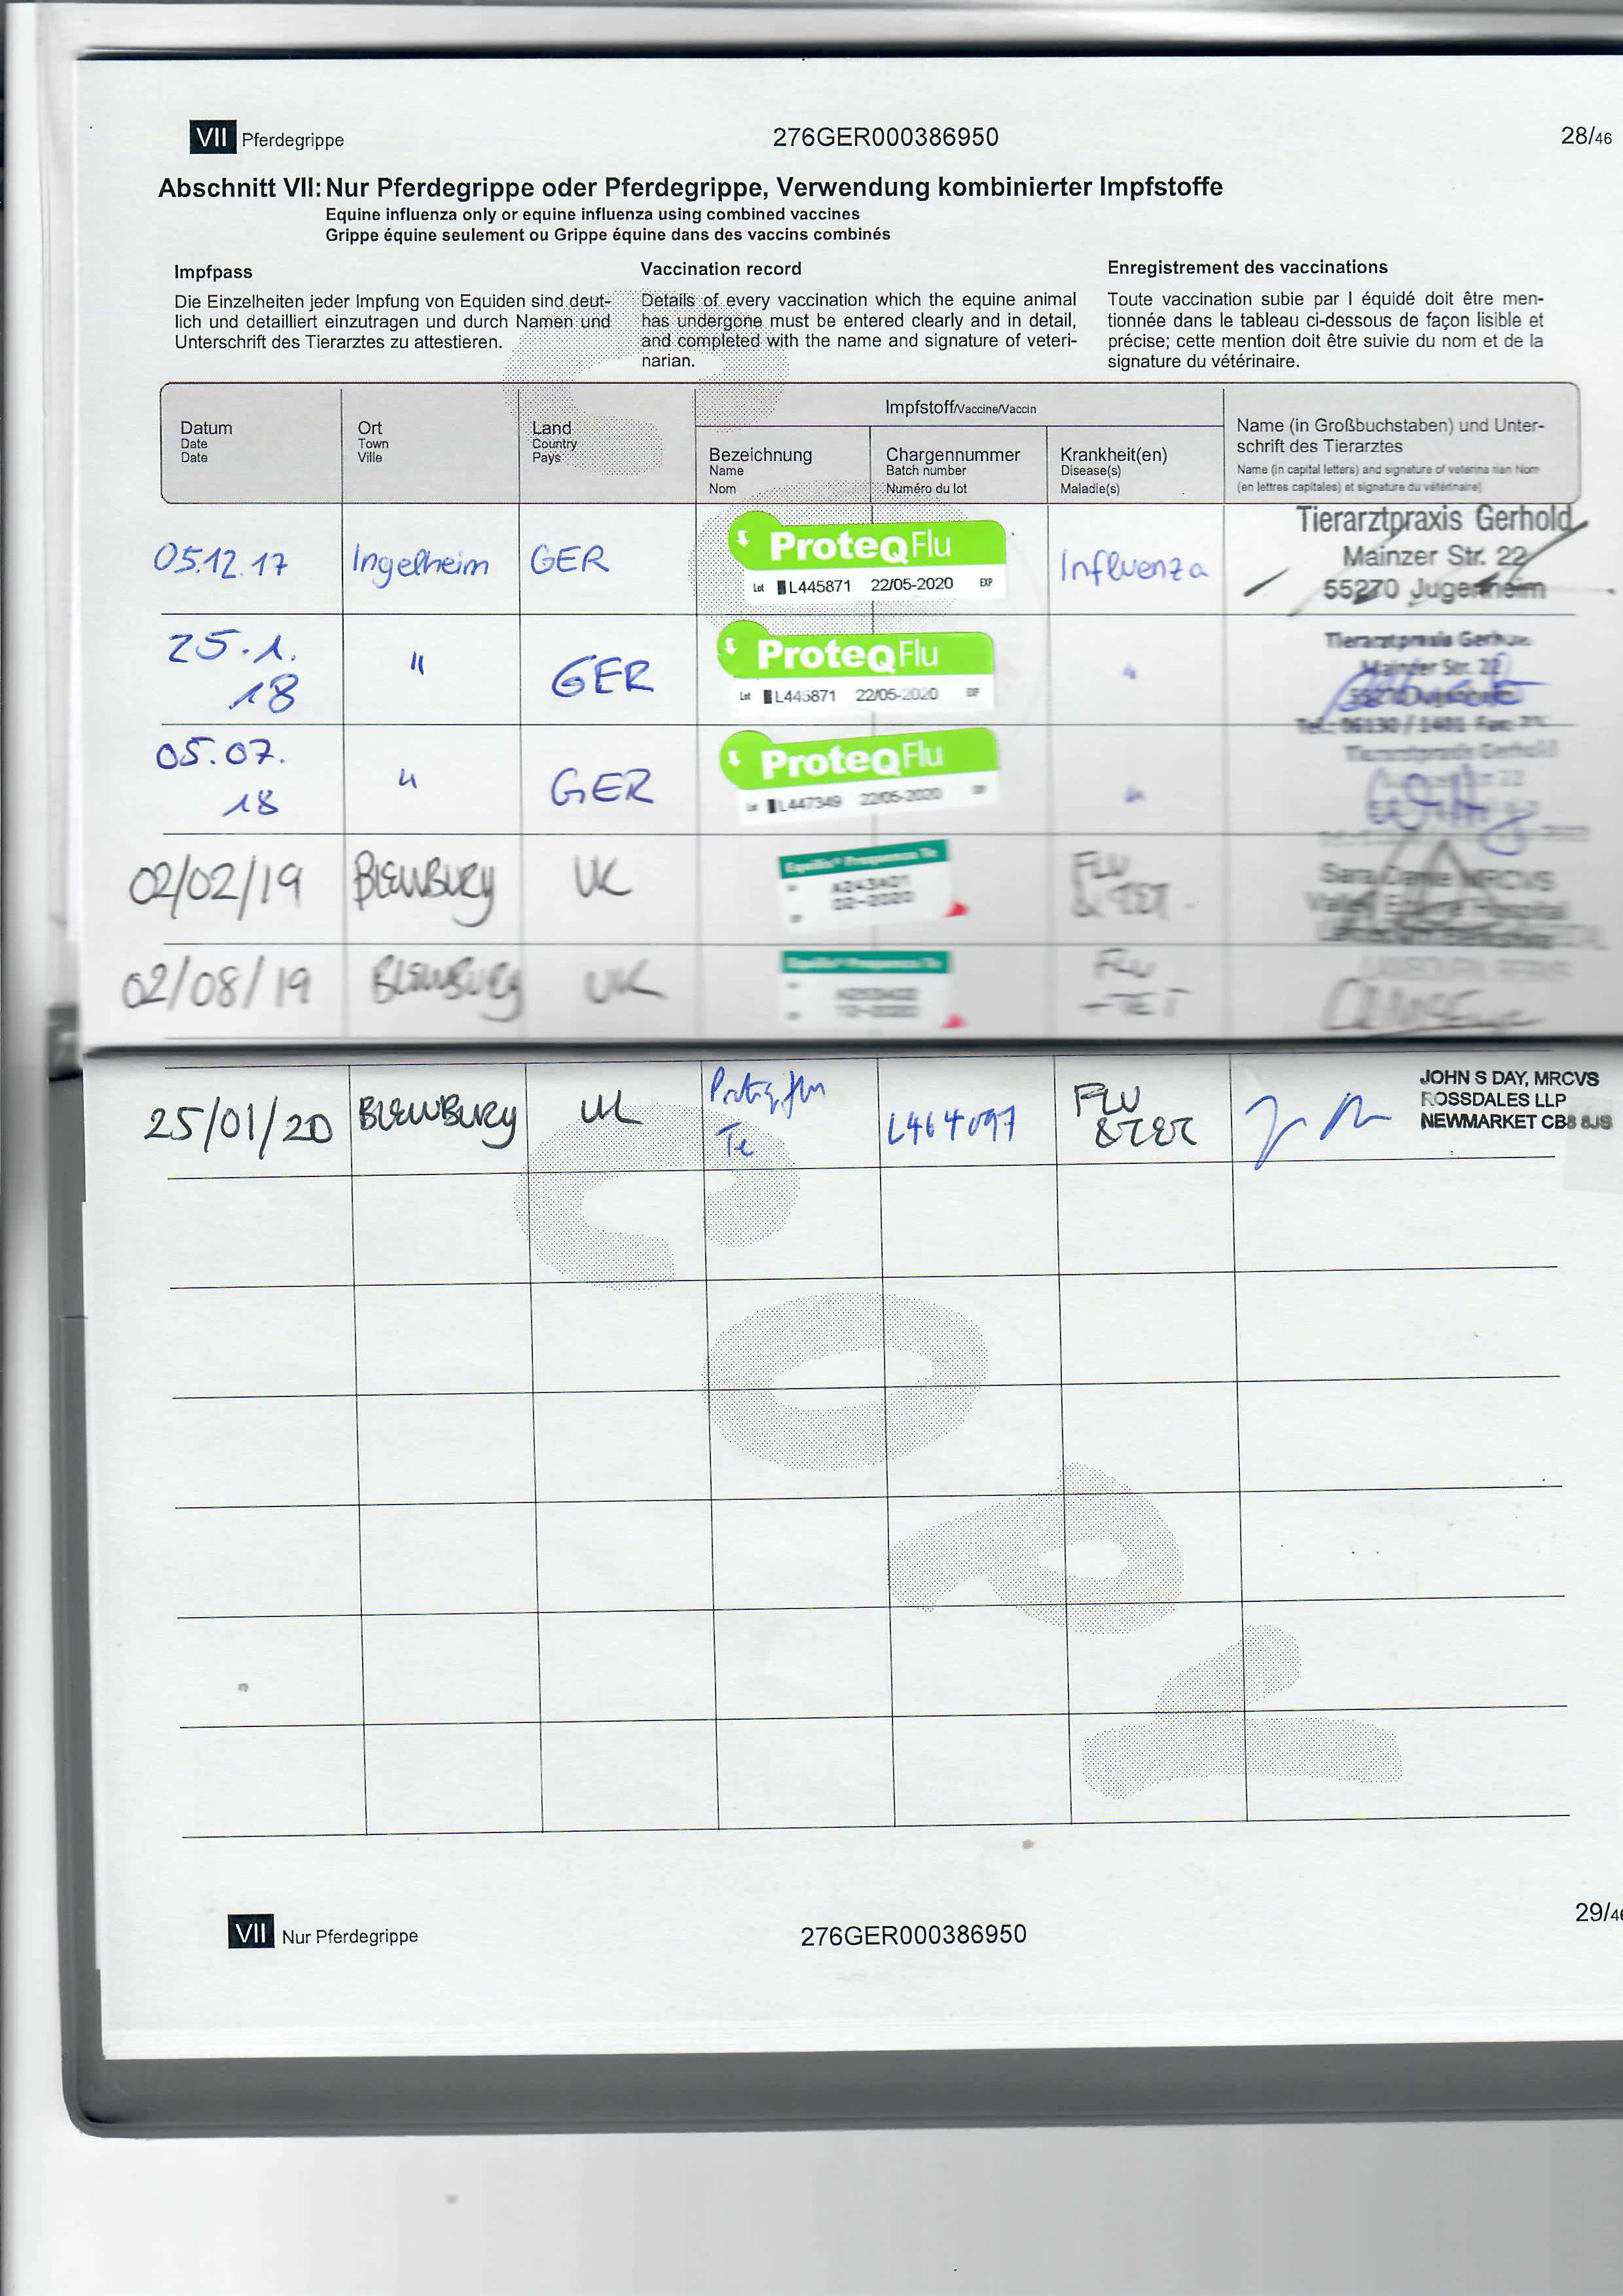 VII Pferdegrippe 276GER000386950 28/46
Abschnitt VII: Nur Pferdegrippe oder Pferdegrippe, Verwendung kombinierter Impfstoffe
Equine influenza only or equine influenza using combined vaccines
Grippe équine seulement ou Grippe équine dans des vaccins combinés
Impfpass
Die Einzelheiten jeder Impfung von Equiden sind deut-
lich und detailliert einzutragen und durch Namen und
Unterschrift des Tierarztes zu attestieren.
Vaccination record
Details of every vaccination which the equine animal
has undergone must be entered clearly and in detail,
and completed with the name and signature of veteri-
narian.
Enregistrement des vaccinations
Toute vaccination subie par l équidé doit être men-
tionnée dans le tableau ci-dessous de façon lisible et
précise; cette mention doit être suivie du nom et de la
signature du vétérinaire.
Datum
Date
Date
Ort
Town
Ville
Land
Country
Pays
Impfstoff/Vaccine/Vaccin
Bezeichnung
Name
Nom
Chargennummer
Batch number
Numéro du lot
Krankheit(en)
Disease(s)
Maladie(s)
Name (in Großbuchstaben) und Unter-
schrift des Tierarztes
Name (in capital letters) and signature of veterinarian Nom
(en lettres capitales) et signature du vétérinaire)
05.12.17 Ingelheim GER
ProteqFlu
Lot L445871 22/05-2020 EXP
Influenza
Tierarztpraxis Gerhold
Mainzer Str. 22
55270 Jugenheim
25.1.
18
" GER
ProteqFlu
Lot L445871 22/05-2020 EXP
"
Tierarztpraxis Gerhold
Mainzer Str. 22
Tel.: 06130 / 1401
05.07.
18
" GER
ProteqFlu
Lot L447349 22/05-2020 EXP
"
Tierarztpraxis Gerhold
02/02/19 BLEWBURY UK
Equilis® Prequenza Te
A243A01
02-2020
FLU
& TET -
MRCVS
Valley Equine Hospital
02/08/19 BLEWBURY UK
Equilis® Prequenza Te
12-2020
FLU
+TET
25/01/20 BLEWBURY UK
Proteqflu
Te
L464097
FLU
& TET
JOHN S DAY, MRCVS
ROSSDALES LLP
NEWMARKET CB8 8JS
VII Nur Pferdegrippe 276GER000386950 29/46